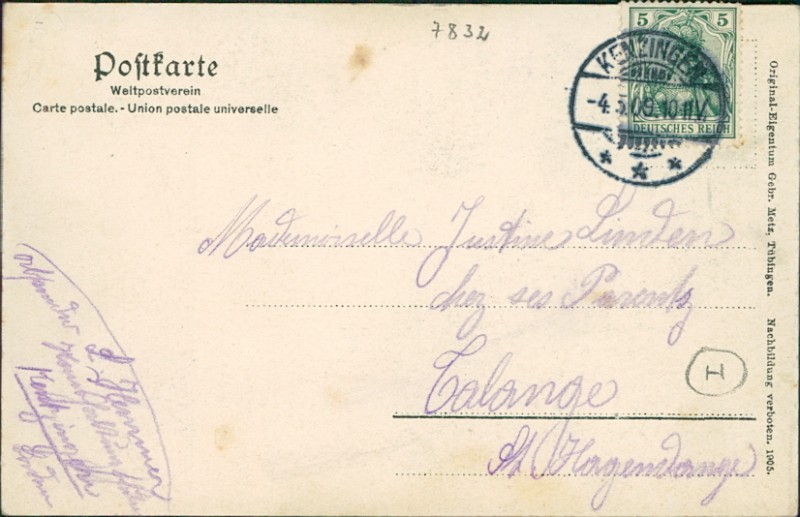 7832
Postkarte
Weltpostverein
Carte postale. - Union postale universelle
5 5
DEUTSCHES REICH
KENZINGEN
-4.5.09. 10-11V.
Mademoiselle Justine Linden
chez ses Parents
Talange
St. Hagendange
I
Original-Eigentum Gebr. Metz, Tübingen. Nachbildung verboten. 1905.